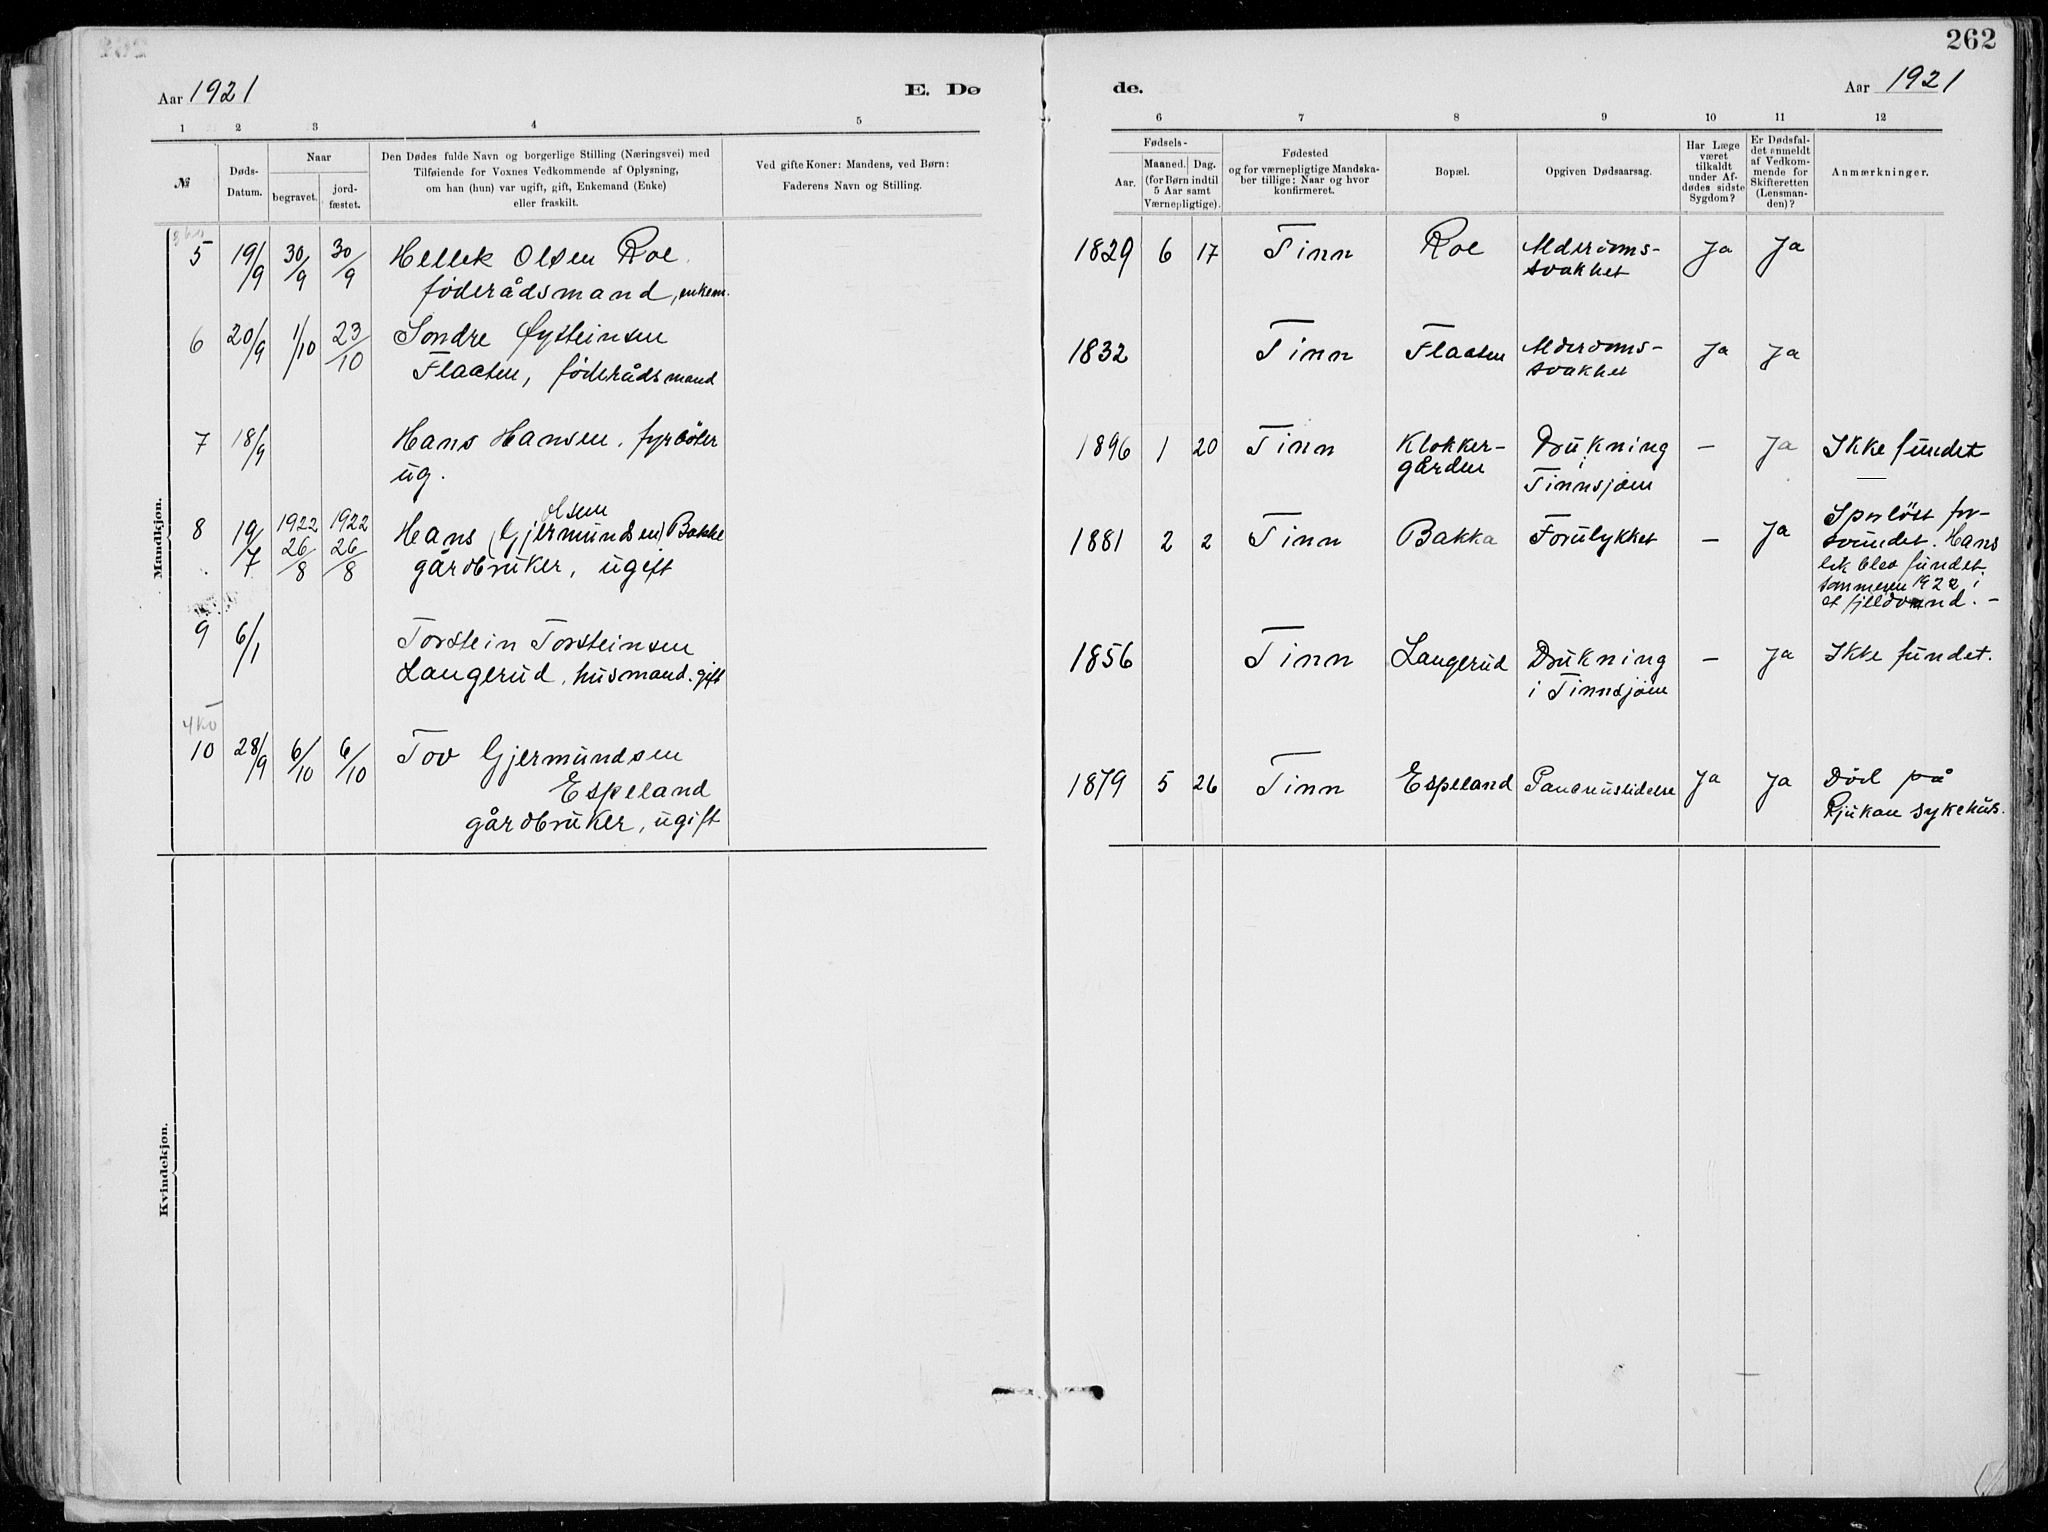 262
Aar 1921
E. Dø
de.
Aar 1921
1 2 3 4 5
6 7 8 9 10 11 12
№
Døds-
Datum.
Naar
begravet.
jord-
fæstet.
Den Dødes fulde Navn og borgerlige Stilling (Næringsvei) med
Tilføiende for Voxnes Vedkommende af Oplysning,
om han (hun) var ugift, gift, Enkemand (Enke)
eller fraskilt.
Ved gifte Koner: Mandens, ved Børn:
Faderens Navn og Stilling.
Fødsels-
Aar.
Maaned. Dag.
(for Børn indtil
5 Aar samt
Værnepligtige).
Fødested
og for værnepligtige Mandska-
ber tillige: Naar og hvor
konfirmeret.
Bopæl.
Opgiven Dødsaarsag.
Har Læge
været
tilkaldt
under Af-
dødes sidste
Sygdom?
Er Dødsfal-
det anmeldt
af Vedkom-
mende for
Skifteretten
(Lensman-
den)?
Anmærkninger.
Mandkjøn.
5 19/9 30/9 30/9 Hellek Olsen Roe.
føderådsmand, enkem.
1829 6 17 Tinn Roe Alderdoms-
svakhet
Ja Ja
6 20/9 1/10 23/10 Sondre Øysteinsen
Flaaten, føderådsmand
1832 Tinn Flaaten Alderdoms-
svakhet
Ja Ja
7 18/9 Hans Hansen, fyrbøter
ug.
1896 1 20 Tinn Klokker-
gården
Drukning
i
Tinnsjøen
— Ja Ikke fundet
8 19/7 1922 26/8 1922 26/8
Olsen
Hans (Gjermundsen) Bakka
gårdbruker, ugift
1881 2 2 Tinn Bakka Forulykket — Ja
Sporløst for-
svundet. Hans
lik blev fundet
sommeren 1922 i
et fjeldvand. —
9 6/1 Torstein Torsteinsen
Langerud, husmand. gift
1856 Tinn Langerud Drukning
i Tinnsjøen
— Ja Ikke fundet.
10 28/9 6/10 6/10 Tov Gjermundsen
Espeland
gårdbruker, ugift
1879 5 26 Tinn Espeland Pancreaslidelse Ja Ja Død på
Rjukan sykehus.
Kvindekjøn.